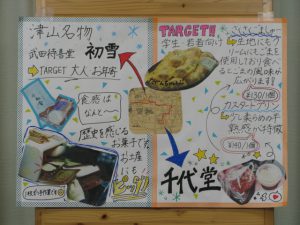 津山名物
武田待喜堂 初雪
⇒TARGET 大人 お年寄
食感は
なんと〜
歴史を感じる
お菓子で
お土産
にも!
TARGET!!
学生・若者向け
⇒生地にも
クリームにもごまを
使用しており食べ
るとごまの風味が
広がります!
¥130/1個
カスタードプリン
⇒少し柔らめの半
熟感が特徴
¥140/1個
千代堂